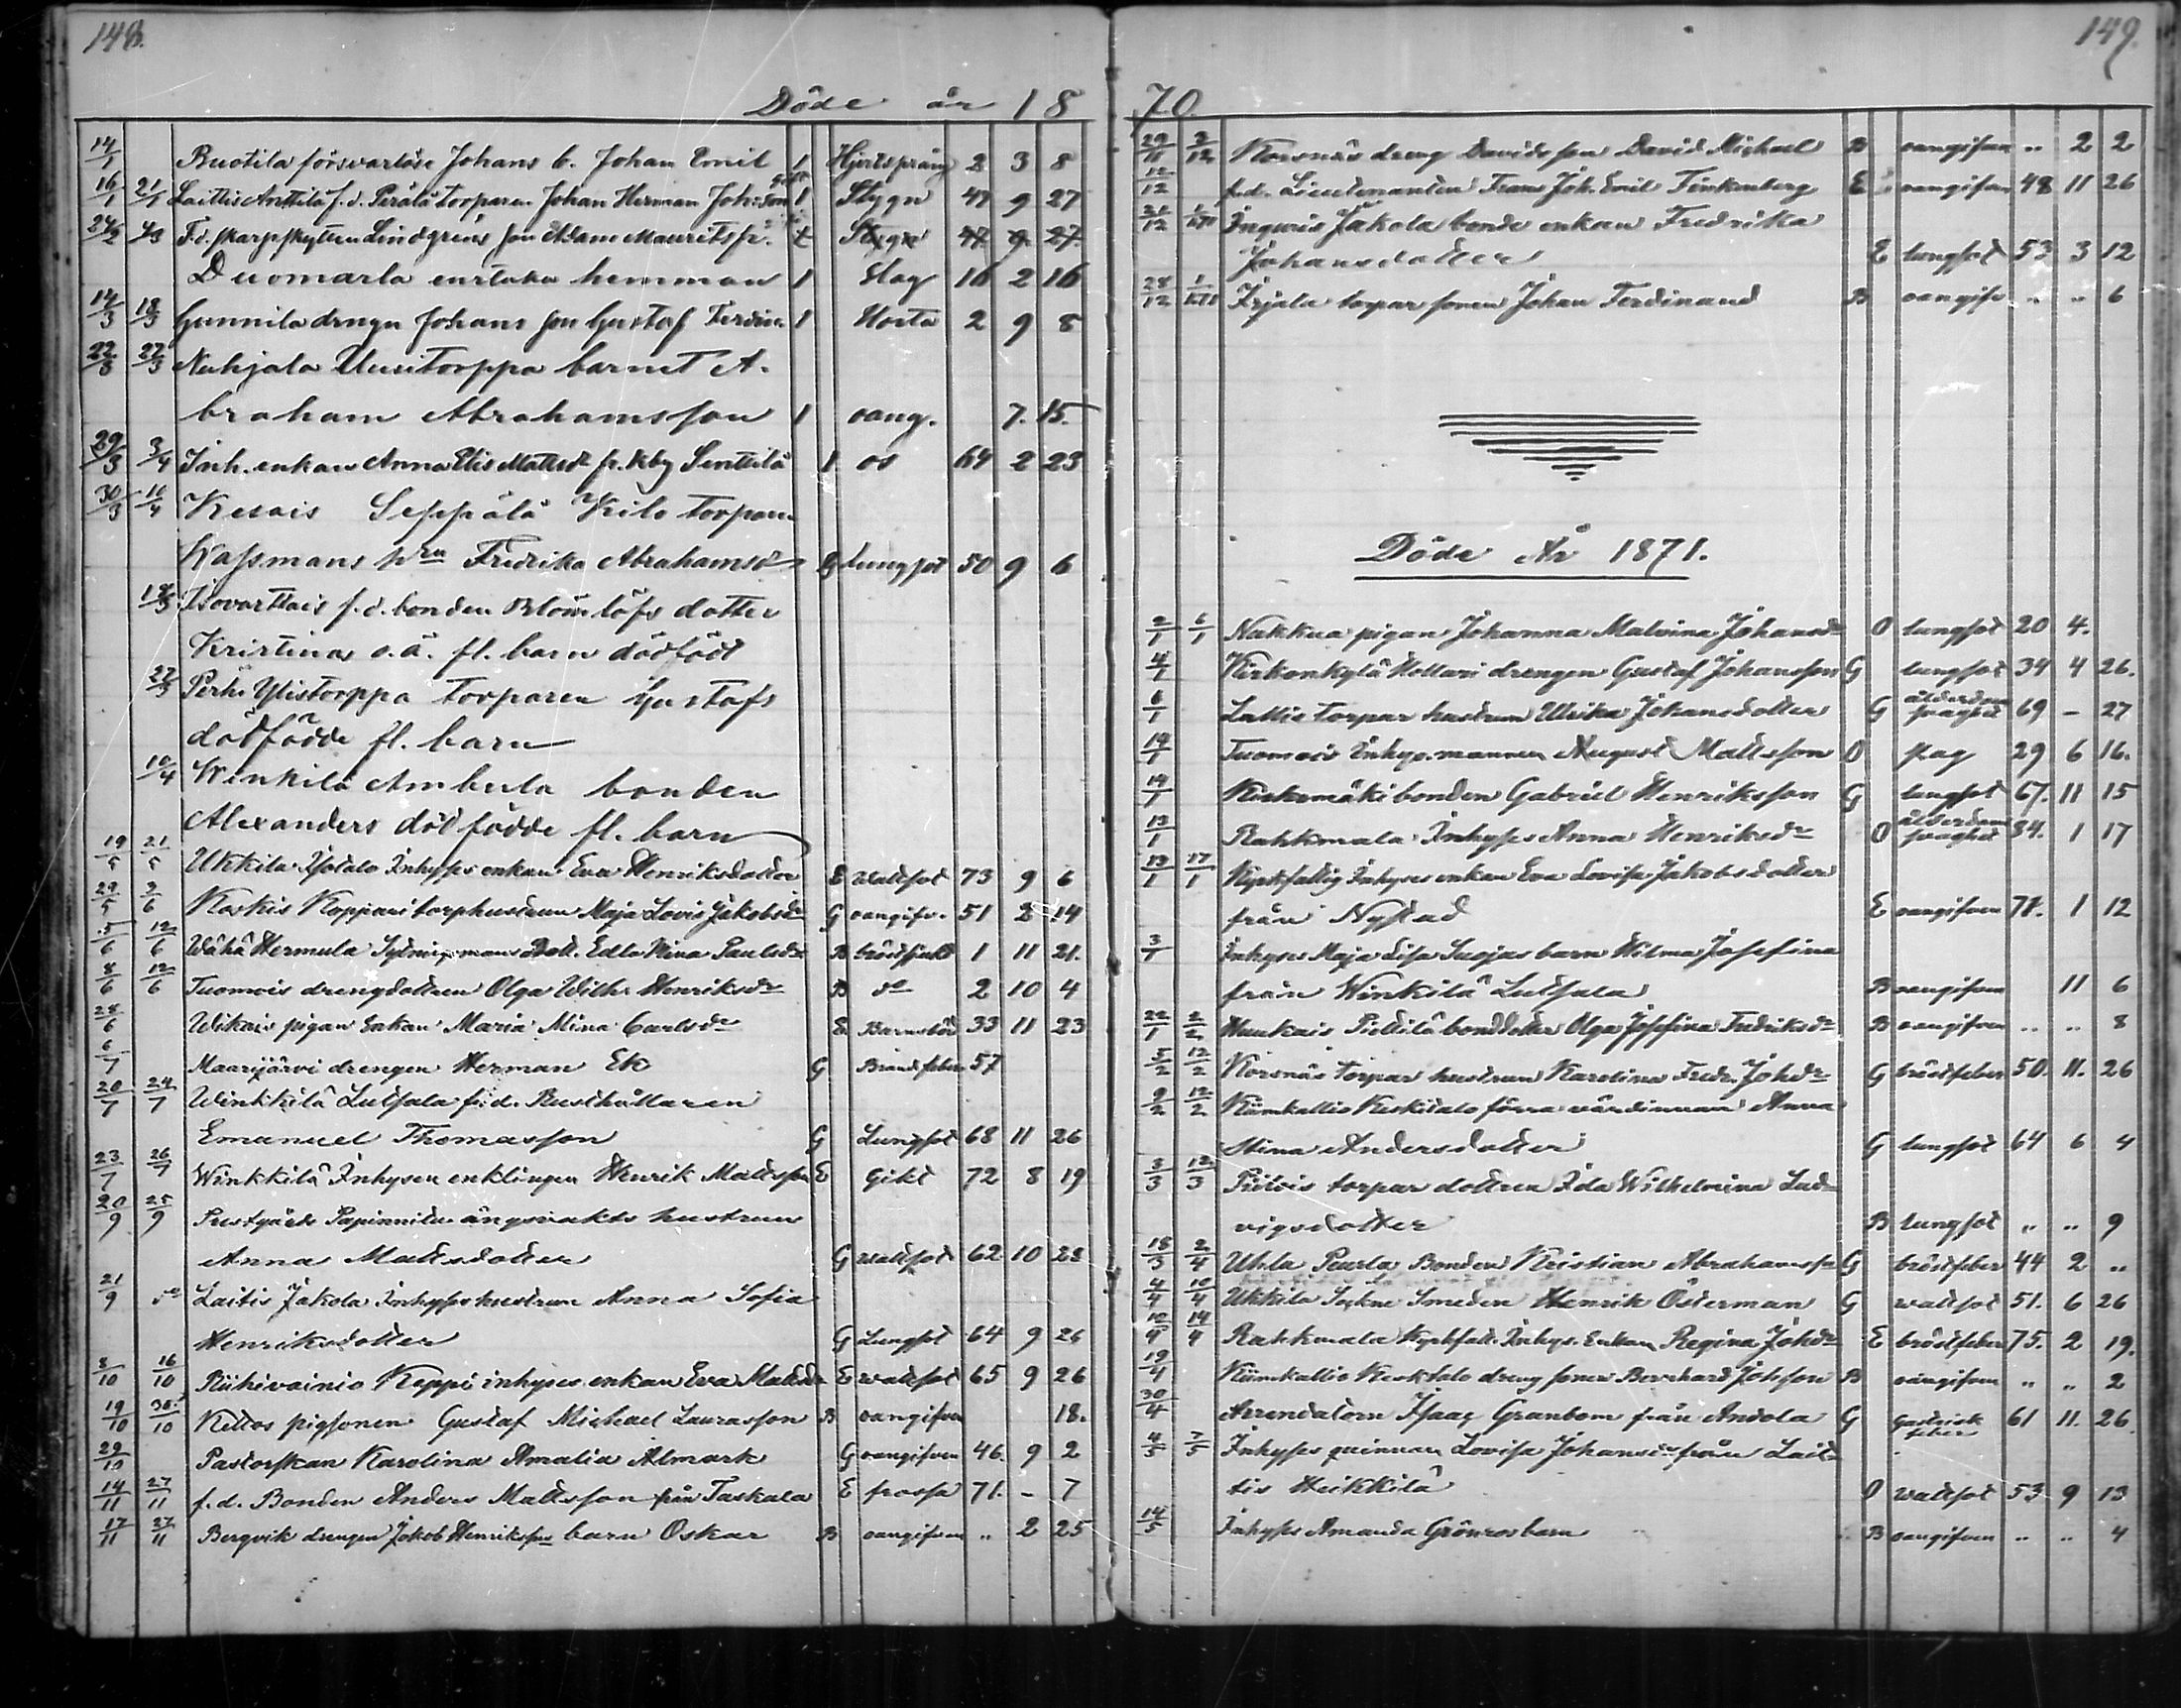 148.
Döde år 18
14/1 Buotila försvarlöse Johans b. Johan Emil 1 Hjertspräng 2 3 8
16/1 21/1 Laittis Anttila f. d. Perälä torparen Johan Herman Joh:son 1 Stygn 47 9 27
F.d. skarpskytten Lindgréns son Adam Mauritz fr. Stygn 47 9 27
Duomarla enstaka hemman 1 Slag 16 2 16
14/3 18/3 Gunnila drengn Johans son Gustaf Ferdin. 1 Hosta 2 9 8
22/3 27/3 Nuhjala Uusitorppa barnet A-
braham Abrahamsson 1 oang. 7. 15.
29/3 3/4 Inh. enkan Anna Elis Mattsdr fr. Kby Senttilä 1 os 64 2 23
30/3 10/4 Kesais Seppälä Kilo torparen
Wassmans hru Fredrika Abrahamsdr G lungsot 50 9 6
18/3 Isovarttais f. d. bonden Blomlöfs dotter
Kristinas o. ä. fl. barn dödfödt
27/3 Perh. Ylistorppa torparen Gustafs
dödfödde fl. barn
10/4 Winkilä Amberla bonden
Alexanders dödfödde fl. barn
19/5 21/5 Ukkila Isotalo Inhyses enkan Eva Henriksdotter E wattsot 73 9 6
29/5 3/6 Koskis Koppari torphustrun Maja Lovis Jakobsdr G oangifv. 51 2 14
5/6 12/6 Wähä Hermula Sytningsmans dott. Edla Mina Paulsdr B bröstsjukd 1 11 21.
8/6 12/6 Tuomois drengdottren Olga Wilh. Henriksdr B do 2 10 4
28/6 Wikais pigan Enkan Maria Mina Carlsdr E Barnsbörd 33 11 23
6/7 Maarijärvi drengen Herman Ek G Brändfeber 57
20/7 24/7 Winkkilä Lutsala f. d. Rusthållaren
Emanuel Thomasson G Lungsot 68 11 26
23/7 26/7 Winkkilä Inhysen enklingen Henrik Mattsson E Gikt 72 8 19
20/9 25/9 Prestgårds Papinniitu ängsvakts hustrun
Anna Mattsdotter G wattsot 62 10 28
21/9 do Laitis Jakola Inhyses hustrun Anna Sofia
Henriksdotter G Lungsot 64 9 26
8/10 16/10 Riihivainio Keppi inhyses enkan Eva Mattsdr E wattsot 65 9 26
19/10 30/10 Kettos pigsonen Gustaf Michael Laurasson B oangifven 18.
29/10 Pastorskan Karolina Amalia Almark G oangifven 46. 9 2
14/11 27/11 f. d. Bonden Anders Mattsson från Taskala E frossa 71. - 7
17/11 27/11 Bergvik drengen Jakob Henrikssons barn Oskar B oangifven .. 2 25
149.
70.
29/11 3/12 Korsnäs dreng Davids son David Michael B oangifven .. 2 2
12/12 f.d. Lieutenanten Frans Joh. Emil Finkenberg E oangifven 48 11 26
21/12 Ingeris Jakola bonde enkan Fredrika
Johansdotter E lungsot 53 3 12
28/12 Irjala torpar sonen Johan Ferdinand B oangifv .. .. 6
Döde År 1871.
2/1 6/1 Nakkua pigan Johanna Malvina Johansdr O lungsot 20 4.
4/1 Kirkonkylä Hollari drengen Gustaf Johansson G lungsot 34 4 26.
6/1 Lattis torpar hustrun Ulrika Johansdotter G ålderdoms svaghet 69 - 27
14/1 Tuomois Inhys. mannen August Mattsson O slag 29 6 16.
14/1 Kiukomäki bonden Gabriel Henriksson G lungsot 67. 11 15
13/1 Rahkmala Inhyses Anna Henriksdr O ålderdoms svaghet 84. 1 17
13/1 17/1 Kyrkfattig Inhyses enkan Eva Lovisa Jakobsdotter
från Nystad E oangifven 71. 1 12
3/1 Inhyses Maja Lisa Suojas barn Wilma Josefina
från Winkilä Lutsala B oangifven 11 6
22/1 2/2 Haukais Pietilä bonddotter Olga Josefina Fredriksdr B oangifven .. .. 8
5/2 12/2 Korsnäs torpar hustrun Karolina Fredr. Johdr G bröstfeber 50. 11. 26
9/2 12/2 Kiimkallio Keskitalo förra värdinnan Anna
Stina Andersdotter G lungsot 64 6 4
3/3 12/3 Piilois torpar dottren Ida Wilhelmina Lud-
vigsdotter B lungsot .. .. 9
18/3 2/4 Uhla Peurla Bonden Kristian Abrahamsson G bröstfeber 44 2 ..
4/4 10/4 Ukkila Sockne Smeden Henrik Österman G wattsot 51. 6 26
10/4 14/4 Rahkmala Kyrkfatt. Inhys. Enkan Regina Johdr E bröstfeber 75. 2 19.
19/4 Kiimkallio Kesktalo dreng sonen Bernhard Johsson B oangifven .. .. 2
30/4 Arrendatorn Isaac Granbom från Andola G Gastrisk feber 61 11. 26
4/5 7/5 Inhyses quinnan Lovisa Johansdr från Lait-
tis Heikkilä O wattsot 53 9 13
14/5 Inhyses Amanda Grönroos barn B oangifven .. .. 4